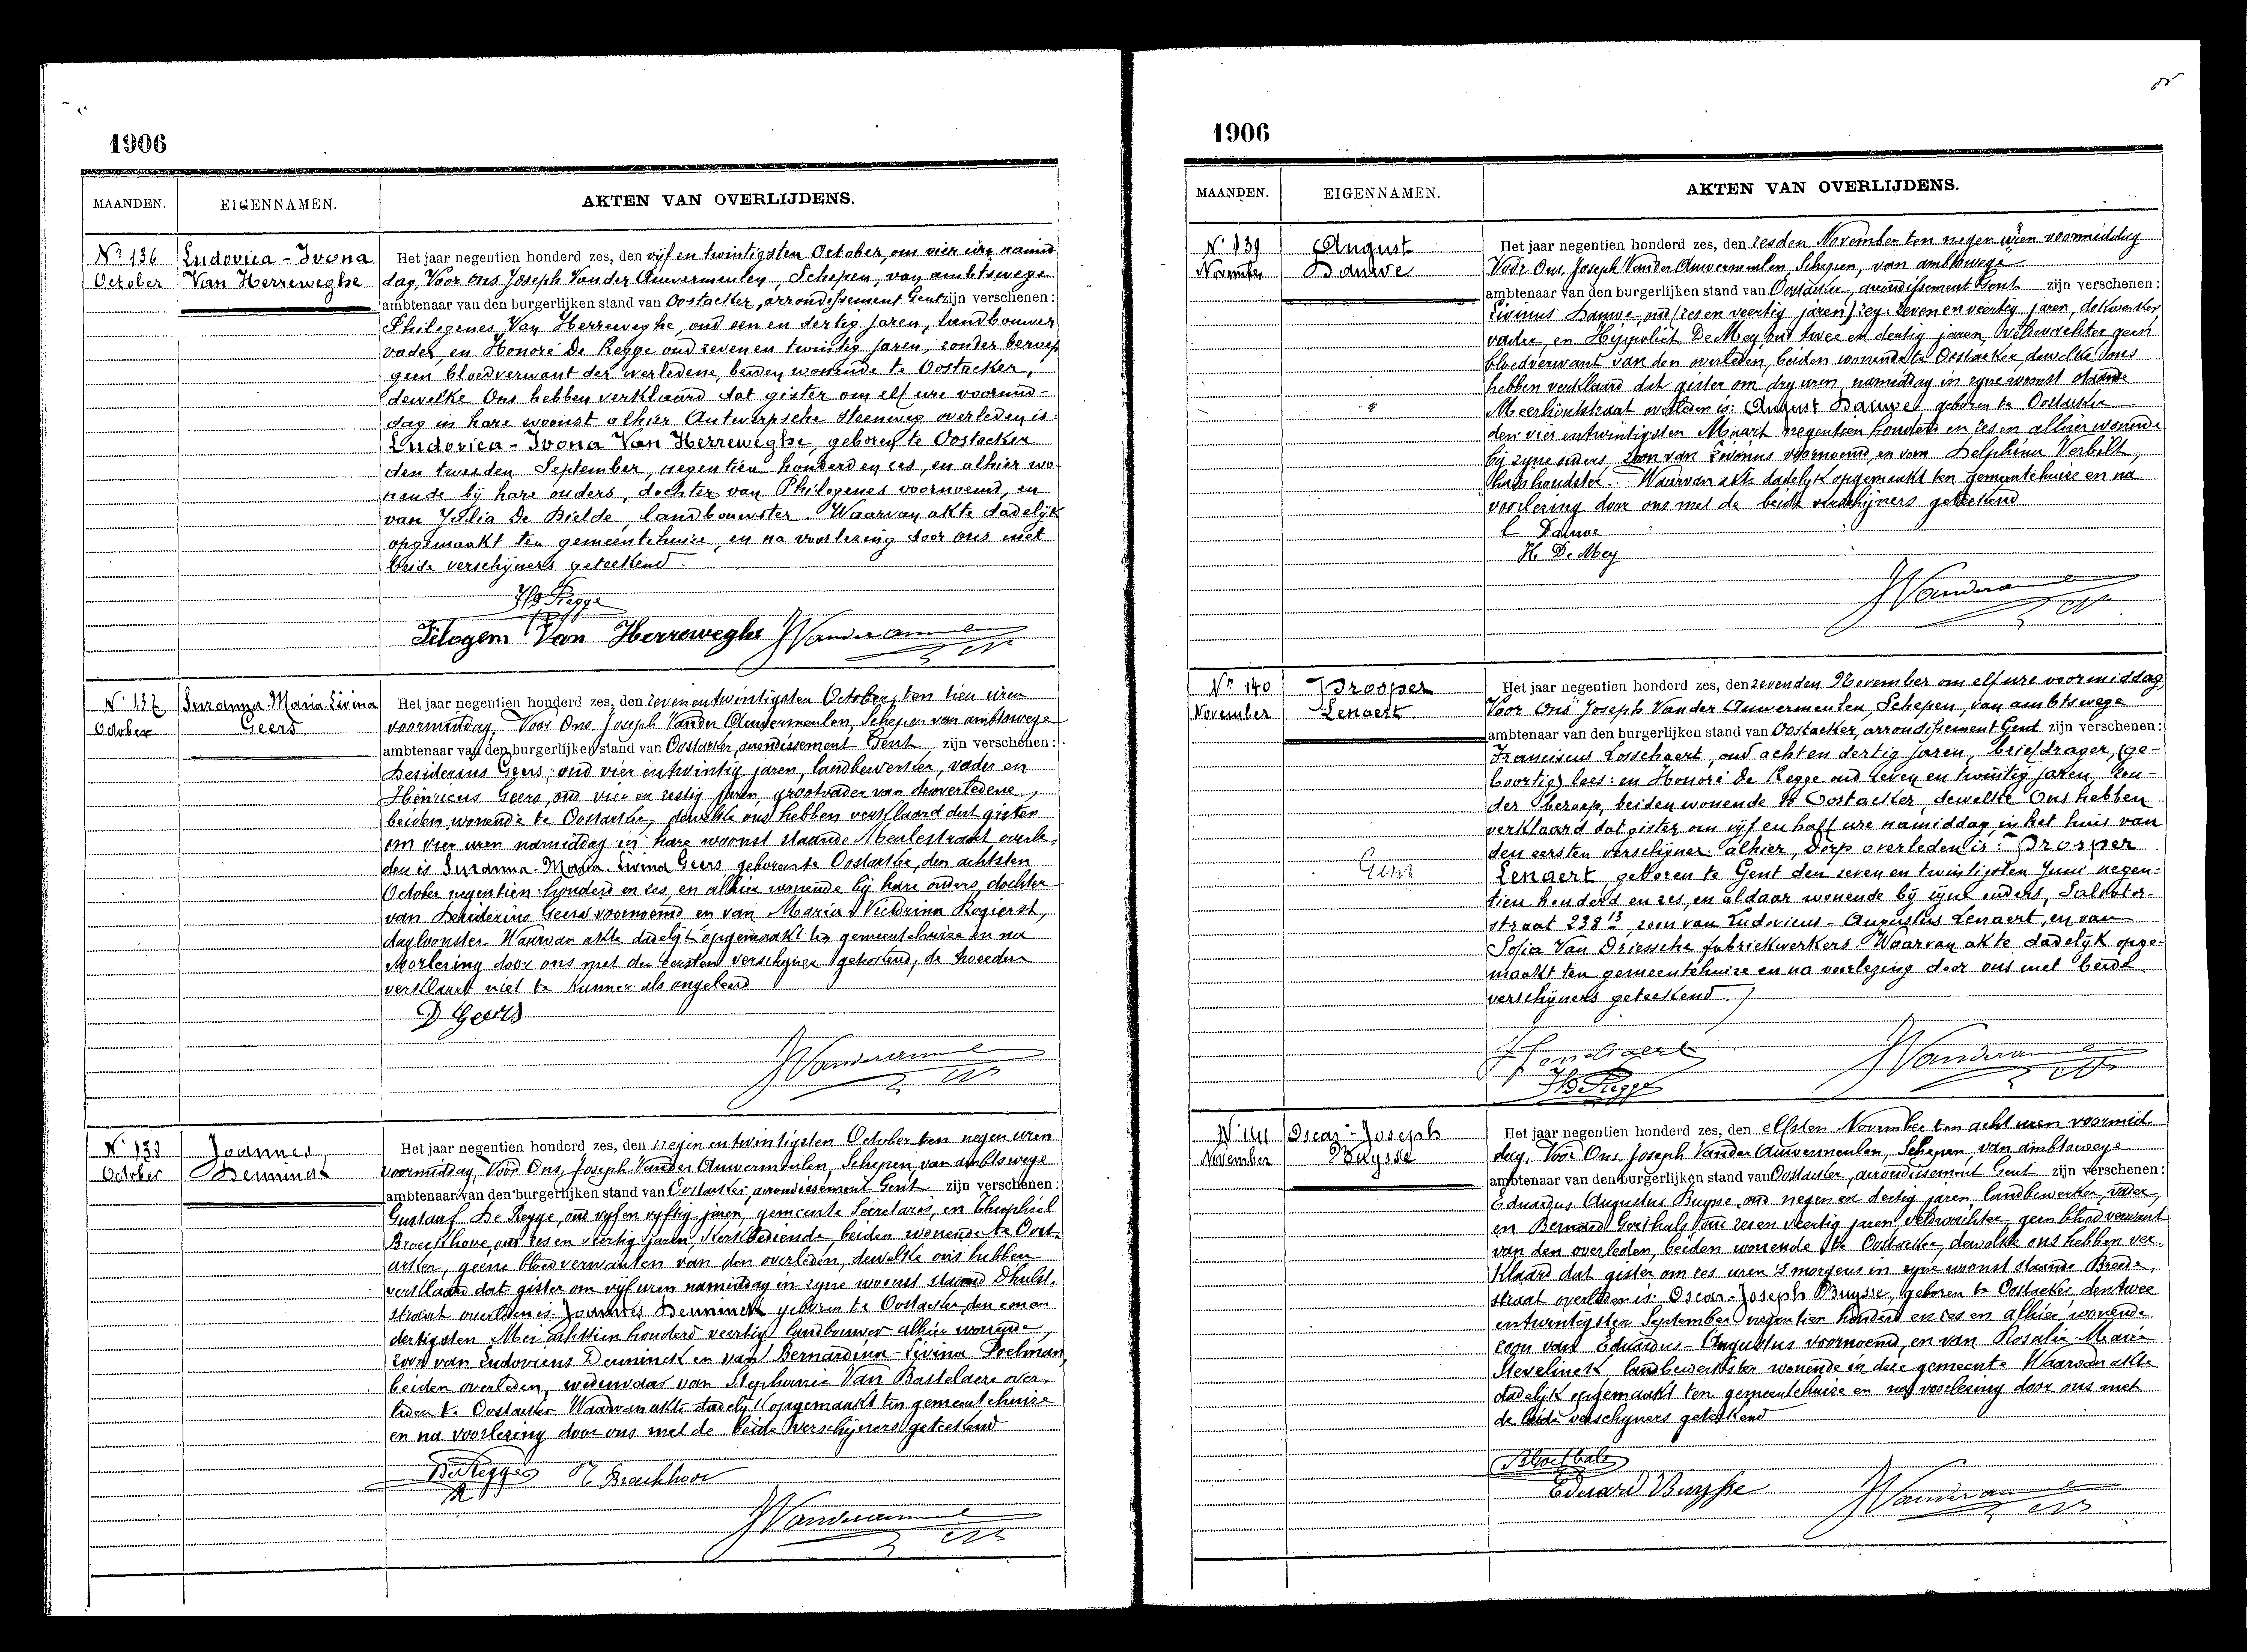 1906
MAANDEN. EIGENNAMEN. AKTEN VAN OVERLIJDENS.
Nr 136 Ludovica - Ivona
October Van Herreweghe
Het jaar negentien honderd zes, den vijf en twintigsten October, om vier ure namid
dag, Voor Ons Joseph Van der Auwermeulen, Schepen, van ambtswege
ambtenaar van den burgerlijken stand van Oostacker, arrondissement Gent zijn verschenen:
Philogenes Van Herreweghe, oud een en dertig jaren, landbouwer
vader, en Honoré De Regge oud zeven en twintig jaren, zonder beroep
geen bloedverwant der overledene, beiden wonende te Oostacker,
dewelke Ons hebben verklaard dat gister om elf ure voormid-
dag in hare woonst alhier Antwerpsche Steenweg overleden is:
Ludovica - Ivona Van Herreweghe, geboren te Oostacker
den tweeden September, negentien honderd en zes, en alhier wo-
nende bij hare ouders, dochter van Philogenes voornoemd, en
van Julia De Bielde, landbouwster. Waarvan akte dadelijk
opgemaakt ten gemeentehuize, en na voorlezing door ons met
beide verschijners geteekend.
H De Regge
Filogem Van Herreweghe JVanderauwermeulen
Nr 137 Suzanna-Maria-Livina
October Geers
Het jaar negentien honderd zes, den zeven en twintigsten October, ten tien uren
voormiddag, Voor Ons Joseph Vander Auwermeulen, Schepen van ambtswege
ambtenaar van den burgerlijken stand van Oostacker, arrondissement Gent zijn verschenen:
Desiderius Geers, oud vier en twintig jaren, landbewerker, vader en
Henricus Geers, oud vier en zestig jaren, grootvader van de overledene,
beiden wonende te Oostacker, dewelke ons hebben verklaard dat gister
om vier uren namiddag in hare woonst staande Meulestraat overle-
den is Suzanna-Maria-Livina Geers, geboren te Oostacker, den achtsten
October negentien honderd en zes, en alhier wonende bij hare ouders, dochter
van Desiderius Geers voornoemd en van Maria Victorina Rogierst,
dagloonster. Waarvan akte dadelijk opgemaakt ten gemeentehuize en na
voorlezing door ons met den eersten verschijner geteekend, de tweeden
verklaart niet te kunnen als ongeleerd
D Geers
JVanderauwermeulen
Nr 138 Joannes
October Denninck
Het jaar negentien honderd zes, den negen en twintigsten October ten negen uren
voormiddag, Voor Ons, Joseph Vander Auwermeulen, Schepen van ambtswege
ambtenaar van den burgerlijken stand van Oostacker, arrondissement Gent zijn verschenen:
Gustaaf De Regge, oud vijf en vijftig jaren, gemeente Secretaris, en Theophiel
Broeckhove, oud zes en veertig jaren Kerkbediende, beiden wonende te Oost-
acker, geene bloedverwanten van den overleden, dewelke ons hebben
verklaard dat gister om vijf uren namiddag in zijne woonst staande Dhulst-
straat overleden is: Joannes Denninck geboren te Oostacker, den een en
dertigsten Mei achttien honderd veertig landbouwer alhier wonende,
zoon van Ludovicus Denninck en van Bernardina-Livina Poelman
beiden overleden, weduwnaar van Stephanie Van Basteláere over-
leden te Oostacker. Waarvan akte dadelijk opgemaakt ten gemeentehuize
en na voorlezing door ons met de beide verschijners geteekend
De Regge T. Broeckhove
JVanderauwermeulen
1906
MAANDEN. EIGENNAMEN. AKTEN VAN OVERLIJDENS.
Nr 139 August
November Dauwe
Het jaar negentien honderd zes, den zesden November ten negen uren voormiddag
Voor Ons, Joseph Vander Auwermeulen, Schepen, van ambtswege
ambtenaar van den burgerlijken stand van Oostacker, arrondissement Gent zijn verschenen:
Livinus Dauwe, oud (zes en veertig jaren) zeg: zeven en veertig jaren, dakwerker
vader, en Hippoliet De Mey oud twee en dertig jaren, veldwachter geen
bloedverwant van den overleden, beiden wonende te Oostacker dewelke ons
hebben verklaard dat gister om dry uren namiddag in zijne woonst staande
Meerhoutstraat overleden is: August Dauwe geboren te Oostacker
den vier en twintigsten Maart negentien honderd en zes en alhier wonende
bij zijne ouders, zoon van Livinus voornoemd, en van Delphina Verbilt,
huishoudster. Waarvan akte dadelijk opgemaakt ten gemeentehuize en na
voorlezing door ons met de beide verschijners geteekend
L Dauwe
H De Mey
JVanderauwermeulen
Nr 140 Prosper
November Lenaert
Gent
Het jaar negentien honderd zes, den zevenden November om elf ure voormiddag,
Voor Ons Joseph Vander Auwermeulen Schepen, van ambtswege
ambtenaar van den burgerlijken stand van Oostacker, arrondissement Gent zijn verschenen:
Franciscus Losschaert, oud acht en dertig jaren, briefdrager, (ge-
boortig) lees: en Honoré De Regge oud zeven en twintig jaren, zon-
der beroep, beiden wonende te Oostacker, dewelke Ons hebben
verklaard dat gister om vijf en half ure namiddag in het huis van
den eersten verschijner alhier, Dorp overleden is: Prosper
Lenaert geboren te Gent den zeven en twintigsten Juni negen-
tien honderd en zes, en aldaar wonende bij zijne ouders, Salvator-
straat 238 13 zoon van Ludovicus-Augustus Lenaert, en van
Sofia Van Driessche fabriekwerkers. Waarvan akte dadelijk opge-
maakt ten gemeentehuize en na voorlezing door ons met beide
verschijners geteekend.
H De Regge JVanderauwermeulen
Nr 141 Oscar-Joseph
November Buysse
Het jaar negentien honderd zes, den elfsten November ten acht uren voormid-
dag, Voor Ons Joseph Vander Auwermeulen, Schepen, van ambtswege
ambtenaar van den burgerlijken stand van Oostacker, arrondissement Gent zijn verschenen:
Eduardus Augustus Buysse, oud negen en dertig jaren landbewerker, vader,
en Bernard Goethals oud zes en veertig jaren, veldwachter, geen bloedverwant
van den overleden, beiden wonende te Oostacker, dewelke ons hebben ver-
klaard dat gister om zes uren 's morgens in zijne woonst staande Breede-
straat overleden is: Oscar-Joseph Buysse, geboren te Oostacker den twee
en twintigsten September negentien honderd en zes en alhier wonende
zoon van Eduardus-Augustus voornoemd, en van Rosalie Marie
Stevelinck, landbewerkster wonende in deze gemeente. Waarvan akte
dadelijk opgemaakt ten gemeentehuize en na voorlezing door ons met
de beide verschijners geteekend
B Goethals
Eduard Buysse JVanderauwermeulen